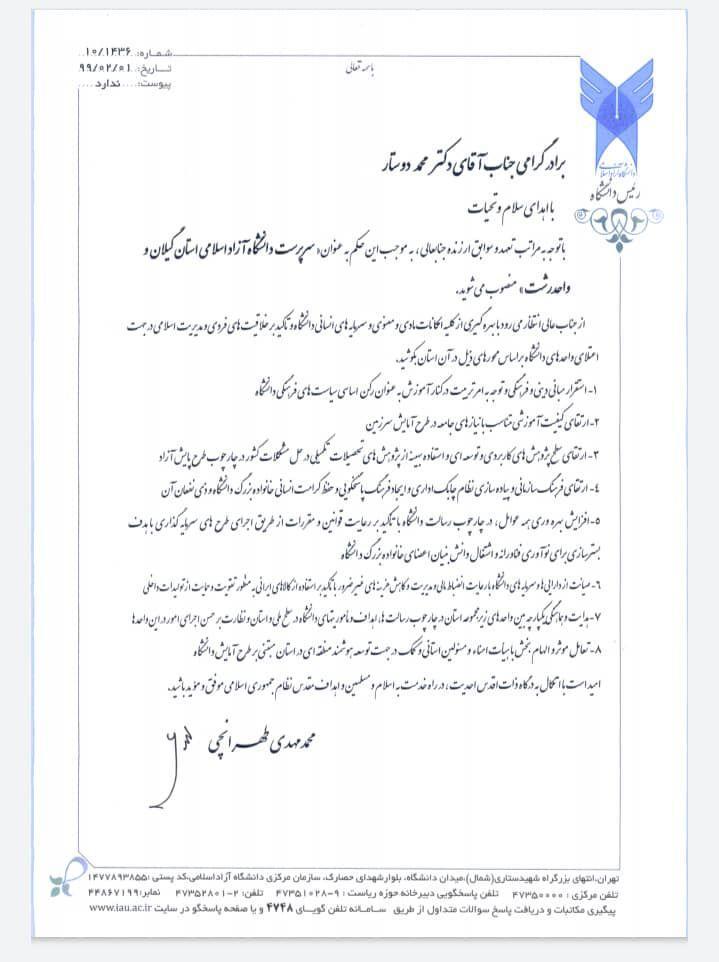 شماره: ۱۰/۱۴۳۶
تاریخ: ۹۹/۰۲/۰۱
پیوست: ندارد
باسمه تعالی
دانشگاه آزاد اسلامی
رئیس دانشگاه
برادر گرامی جناب آقای دکتر محمد دوستار
با اهدای سلام و تحیات
با توجه به مراتب تعهد و سوابق ارزنده جنابعالی، به موجب این حکم به عنوان «سرپرست دانشگاه آزاد اسلامی استان گیلان و
واحد رشت» منصوب می شوید.
از جناب عالی انتظار می رود با بهره گیری از کلیه امکانات مادی و معنوی و سرمایه های انسانی دانشگاه و تاکید بر خلاقیت های فردی و مدیریت اسلامی در جهت
اعتلای واحدهای دانشگاه بر اساس محورهای ذیل در آن استان بکوشید.
۱- استقرار مبانی دینی و فرهنگی و توجه به امر تربیت در کنار آموزش به عنوان رکن اساسی سیاست های فرهنگی دانشگاه
۲- ارتقای کیفیت آموزشی متناسب با نیازهای جامعه در طرح آمایش سرزمین
۳- ارتقای سطح پژوهش های کاربردی و توسعه ای و استفاده بهینه از پژوهش های تحصیلات تکمیلی در حل مشکلات کشور در چارچوب طرح پایش آزاد
۴- ارتقای فرهنگ سازمانی و پیاده سازی نظام چابک اداری و ایجاد فرهنگ پاسخگویی و حفظ کرامت انسانی خانواده بزرگ دانشگاه و ذی نفعان آن
۵- افزایش بهره وری همه عوامل، در چارچوب رسالت دانشگاه با تاکید بر رعایت قوانین و مقررات از طریق اجرای طرح های سرمایه گذاری با هدف
بسترسازی برای نوآوری فناورانه و اشتغال دانش بنیان اعضای خانواده بزرگ دانشگاه
۶- صیانت از دارایی ها و سرمایه های دانشگاه با رعایت انضباط مالی و مدیریت و کاهش هزینه های غیرضرور با تاکید بر استفاده از کالاهای ایرانی به منظور تقویت و حمایت از تولیدات داخلی
۷- هدایت و هماهنگی یکپارچه بین واحدهای زیرمجموعه استان در چارچوب رسالت ها، اهداف و مأموریتهای دانشگاه در سطح ملی و استان و نظارت بر حسن اجرای امور در این واحدها
۸- تعامل موثر و الهام بخش با هیأت امناء و مسئولین استانی و کمک در جهت توسعه هوشمند منطقه ای در استان مبتنی بر طرح آمایش دانشگاه
امید است با اتکال به درگاه ذات اقدس احدیت، در راه خدمت به اسلام و مسلمین و اهداف مقدس نظام جمهوری اسلامی موفق و مؤید باشید.
محمد مهدی طهرانچی
تهران،انتهای بزرگراه شهیدستاری(شمال)،میدان دانشگاه، بلوارشهدای حصارک، سازمان مرکزی دانشگاه آزاداسلامی،کد پستی :۱۴۷۷۸۹۳۸۵۵
تلفن مرکزی : ۴۷۳۵۰۰۰۰ تلفن پاسخگویی دبیرخانه حوزه ریاست : ۹-۴۷۳۵۱۰۲۸ تلفن: ۲-۴۷۳۵۲۸۰۱ نمابر:۴۴۸۶۷۱۹۹
پیگیری مکاتبات و دریافت پاسخ سوالات متداول از طریق سـامـانه تلفن گویـای ۴۷۴۸ و یا صفحه پاسخگو در سایت www.iau.ac.ir